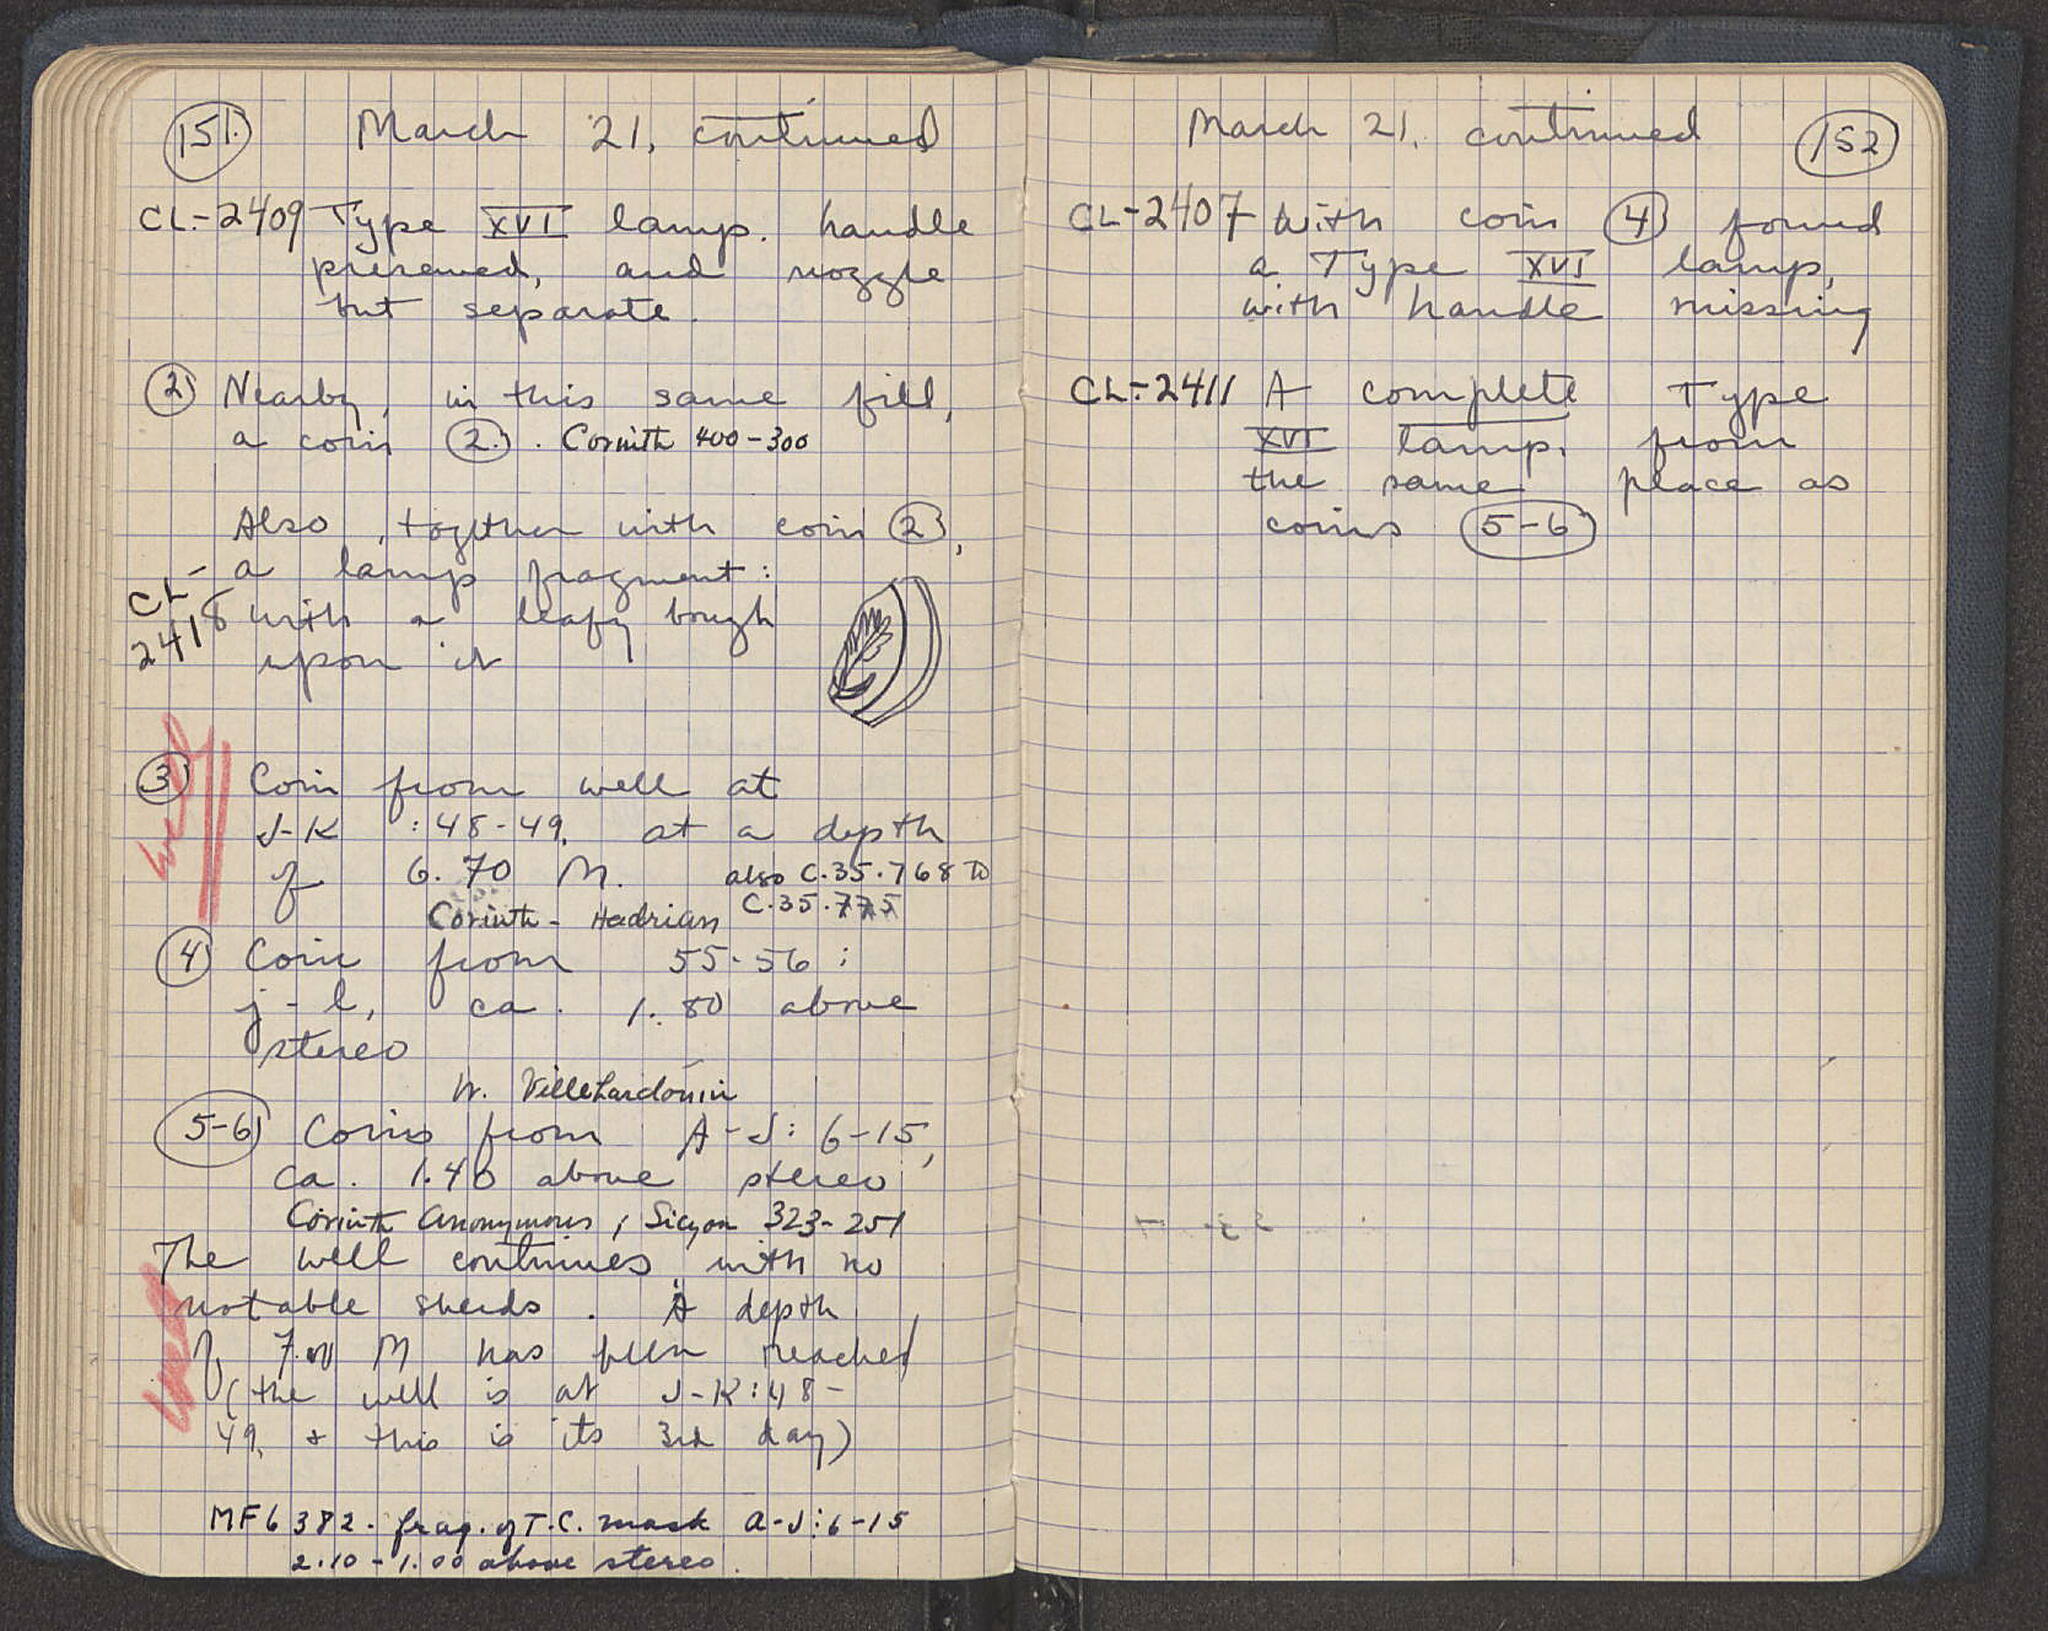 151.
March 21, continued
CL-2409 Type XVI lamp. handle
preserved, and nozzle
but separate.
2) Nearby, in this same fill,
a coin 2. Corinth 400-300
Also, together with coin 2,
a lamp fragment:
CL-2418
with a leafy bough
upon it
3) Coin from well at
J-K :48-49. at a depth
of 6.70 M. also C.35.768 to
C.35.775
Corinth - Hadrian
well
4) Coin from 55-56:
j-l, ca. 1.80 above
stereo
W. Villehardouin
5-6) Coins from A-J: 6-15,
ca. 1.40 above stereo
Corinth Anonymous; Sicyon 323-251
The well continues with no
notable sherds. A depth
of 7.00 M has been reached
(the well is at J-K:48-
49, + this is its 3rd day)
well
MF6382. frag. of T.C. mask A-J:6-15
2.10-1.00 above stereo.
March 21, continued
152
CL-2407 With coin 4) found
a Type XVI lamp,
with handle missing
CL-2411 A complete Type
XVI lamp. from
the same place as
coins 5-6)